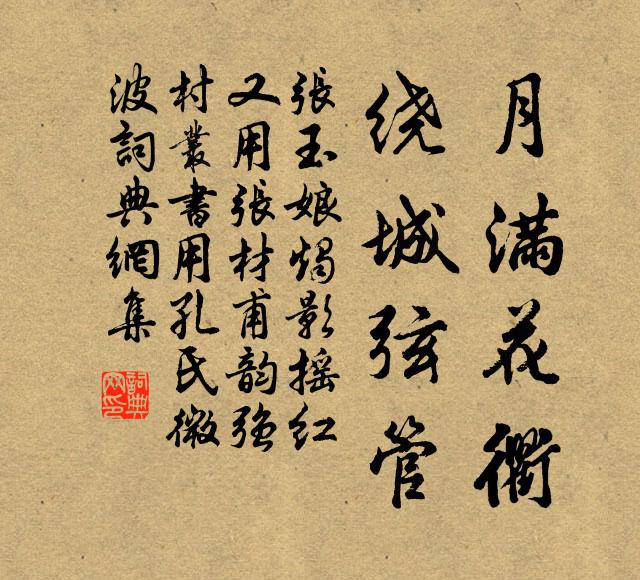 月满花衢
绕城弦管
張玉娘燭影摇红
又用張材甫韵强
村叢書用孔氏微
波詞典網集
詞典網印